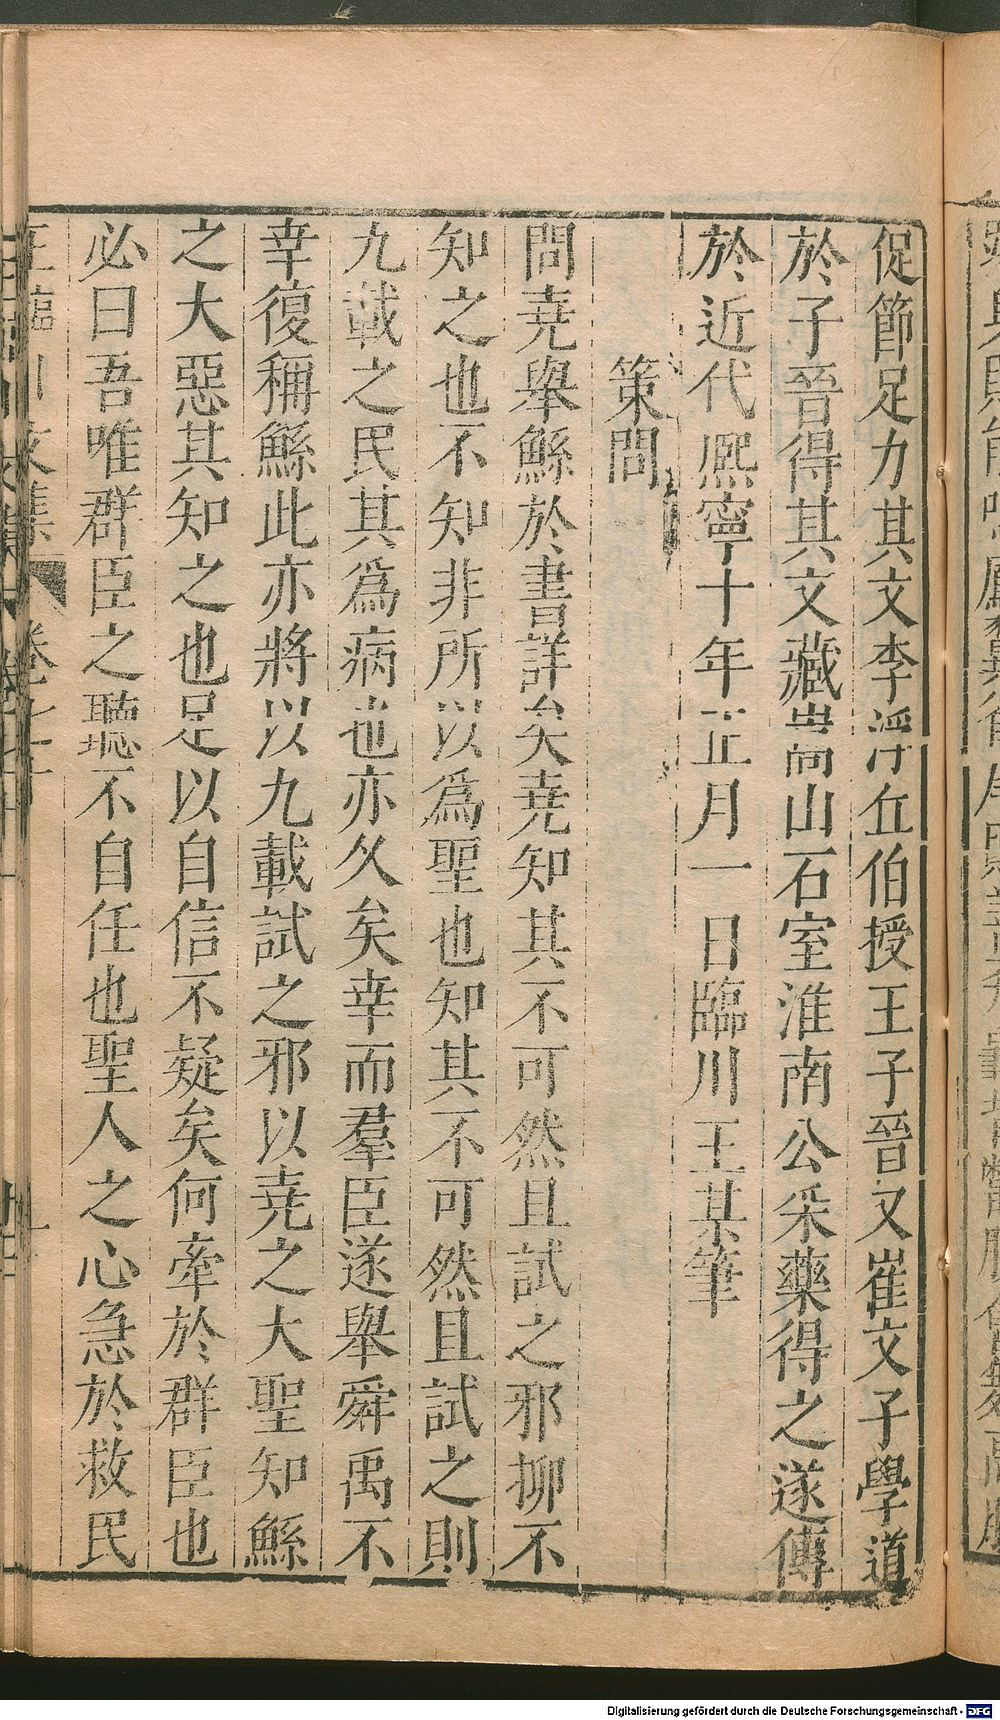 促節足力其文李浮丘伯授王子晉又崔文子學道
於子晉得其文藏嵩山石室淮南公采藥得之遂傳
於近代熈寧十年正月一日臨川王某筆
策問
問堯舉鯀於書詳矣堯知其不可然且試之邪抑不
知之也不知非所以爲聖也知其不可然且試之則
九載之民其爲病也亦久矣幸而羣臣遂舉舜禹不
幸復稱鯀此亦將以九載試之邪以堯之大聖知鯀
之大惡其知之也足以自信不疑矣何牽於群臣也
必曰吾唯群臣之聽不自任也聖人之心急於救民
Digitalisierung gefördert durch die Deutsche Forschungsgemeinschaft - DFG